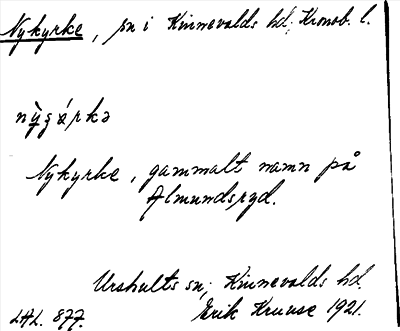 Nykyrke, sn i Kinnevalds hd; Kronob. l.
nỳʒǽrkə
Nykyrke, gammalt namn på
Almundsryd.
Urshults sn; Kinnevalds hd.
LAL. 877. Erik Kruuse 1921.